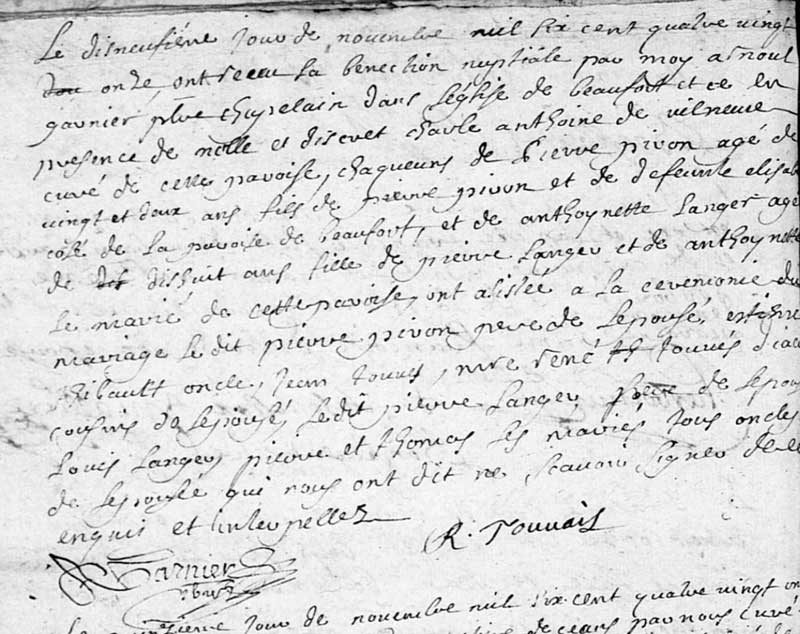 Le disneufiéme jour de novembre mil six cent quatre vingt
onze, ont receu la benection nuptiale par moy arnoul
garnier pbre chapelain dans l'église de beaufort et ce en
presence de noble et discret charle anthoine de vilneuve
curé de cette paroise, chaqueuns de Pierre pivon agé de
vingt et deux ans fils de pierre pivon et de defeunte elisab
cosé de la paroise de beaufort, et de anthoynette Langer agé
de dishuit ans fille de pierre Langer et de anthoynette
Le marié de cette paroise, ont asistée a la ceremonie du
mariage le dit pierre pivon pere de l'epousé, estienne
Ribault oncle, jean Touves, mre rené Touvés diac
cousins de lepousé, le dit pierre Langer pere de lepou
Louis Langer, pierre et thomas les mariés tous oncles
de lepousée qui nous ont dit ne scavoir signer de ce
enquis et interpellez
R. Touvais
Garnier
pbre
jour de novembre mil six cent quatre vingt on
de ceans par nous curé